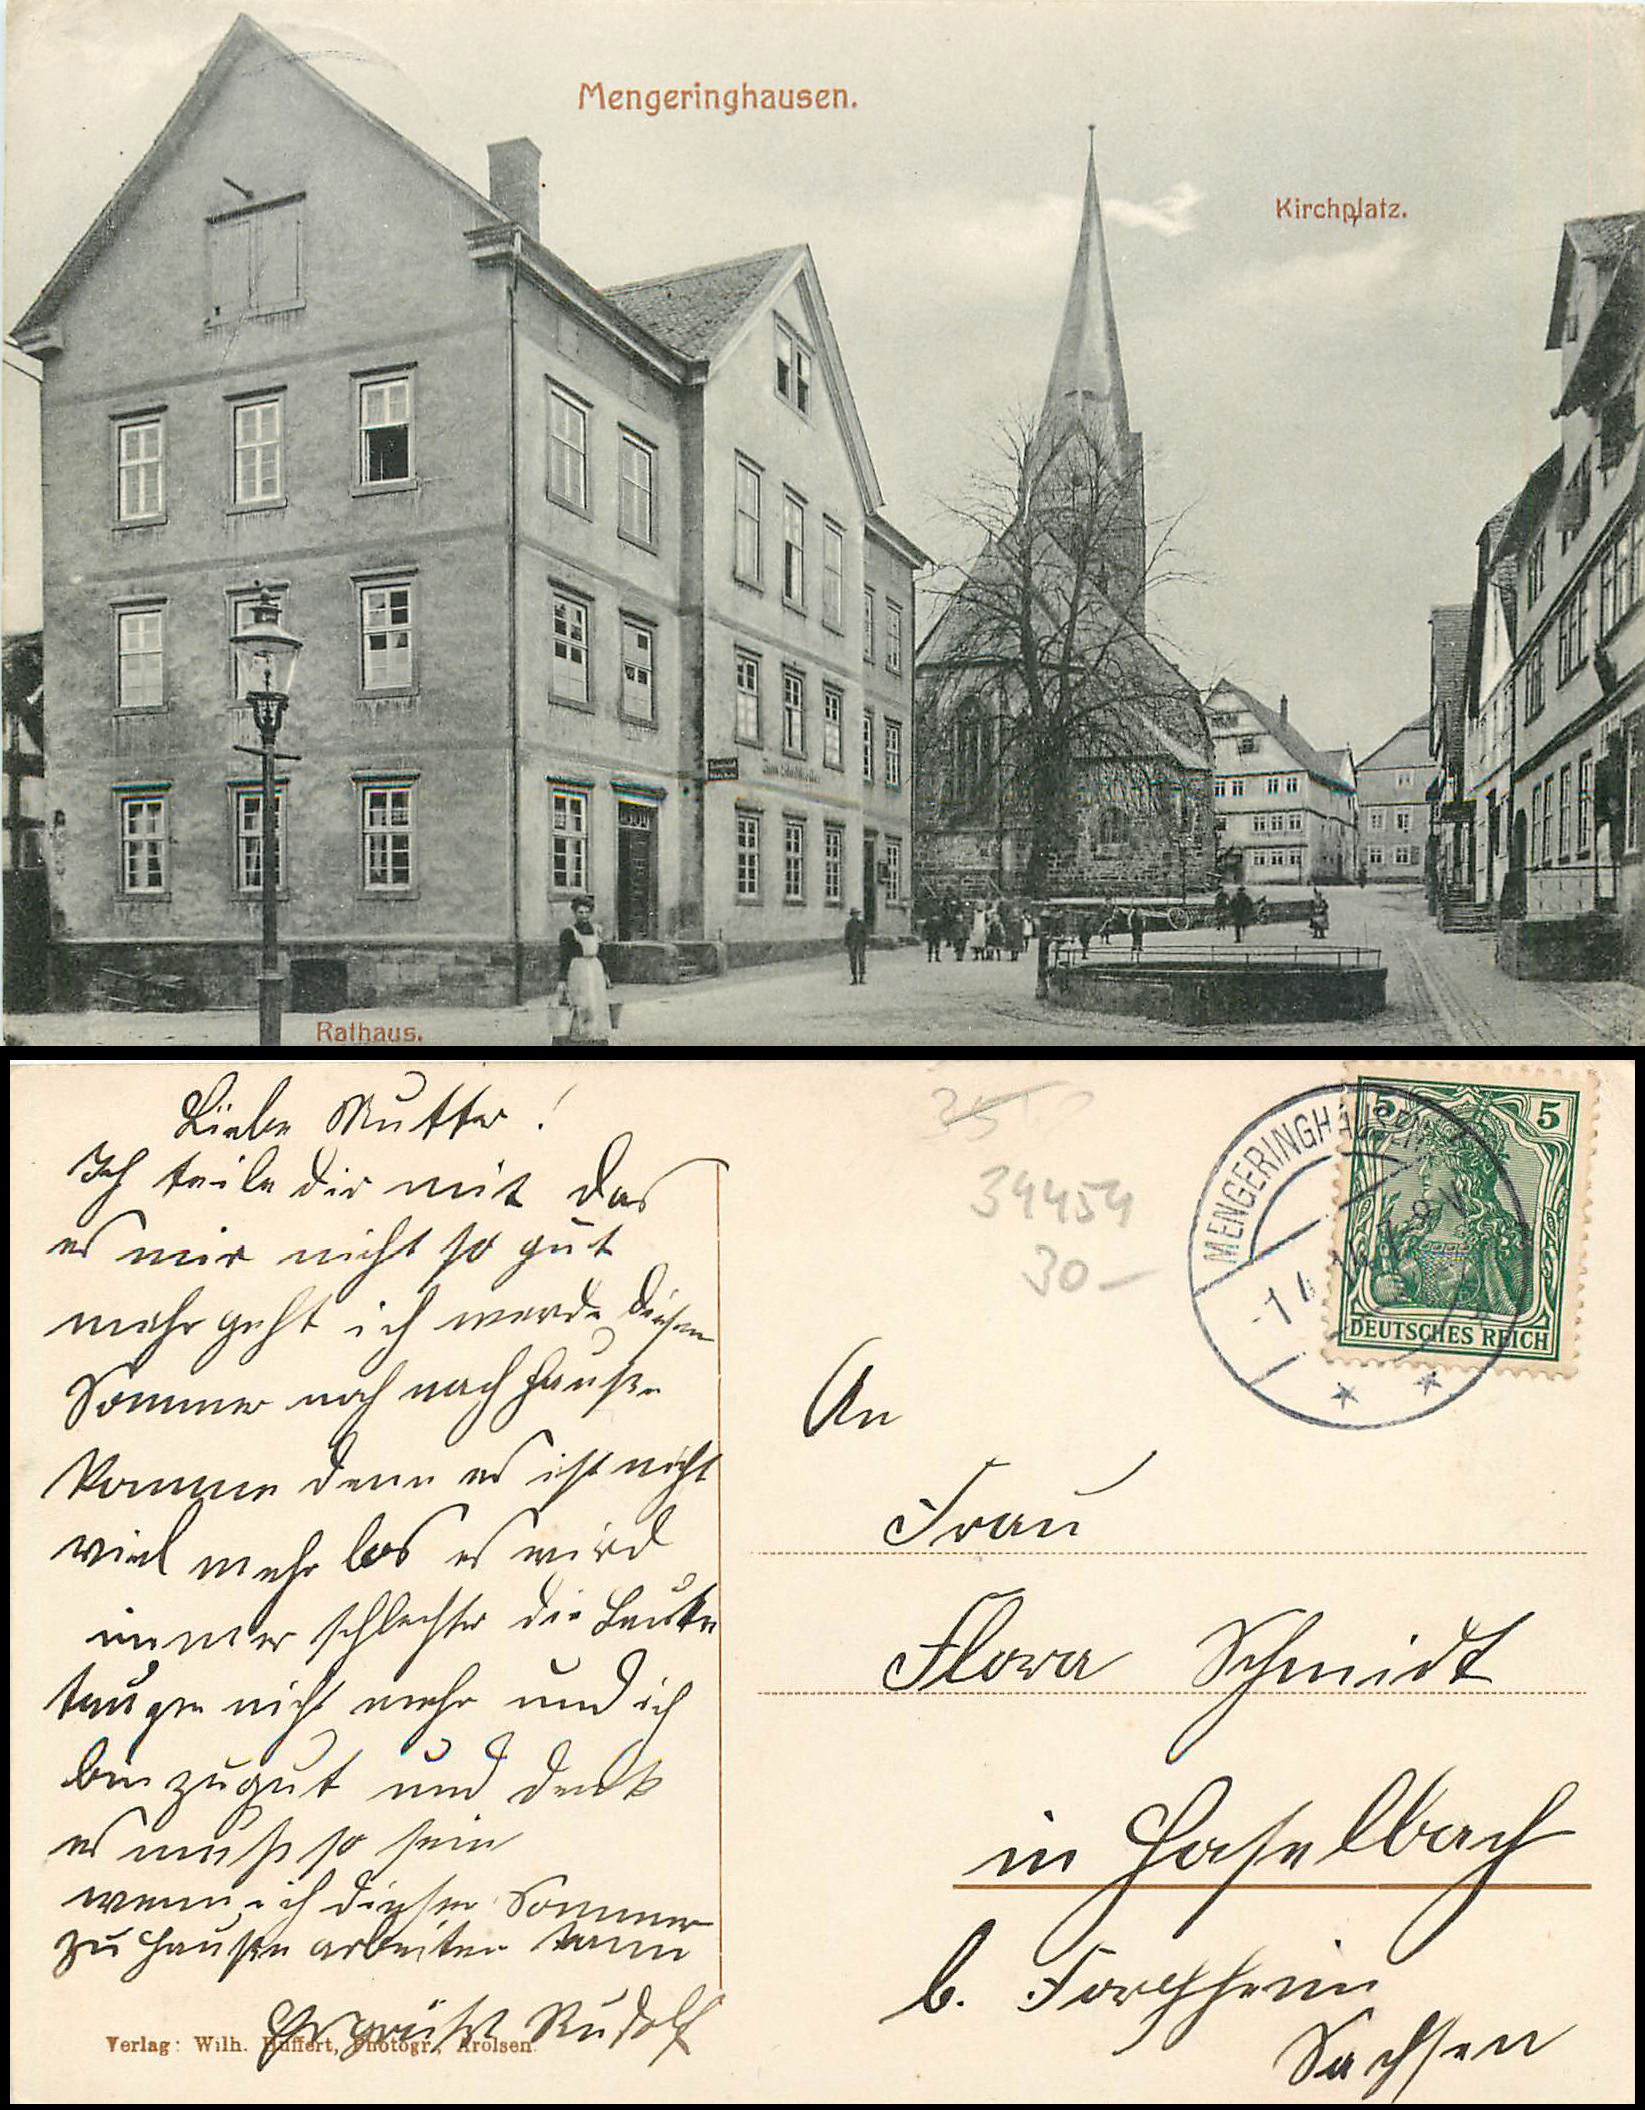 Mengeringhausen.
Kirchplatz.
Rathaus.
Liebe Mutter!
Ich teile dir mit das
es mir nicht so gut
mehr geht ich werde diesen
Sommer noch nach Hauße
komme denn es ist nicht
viel mehr los es wird
immer schlechter die Leute
taugen nicht mehr und ich
bin zu gut und denk
es muß so sein
wenn ich diesen Sommer
zu Hauße arbeiten kann
Es grüßt Rudolf
Verlag: Wilh. Hüffert, Photogr., Arolsen
35
34454
30-
MENGERINGHAUSEN
5 5
DEUTSCHES REICH
An
Frau
Flora Schmidt
in Haselbach
b. Forchheim
Sachsen